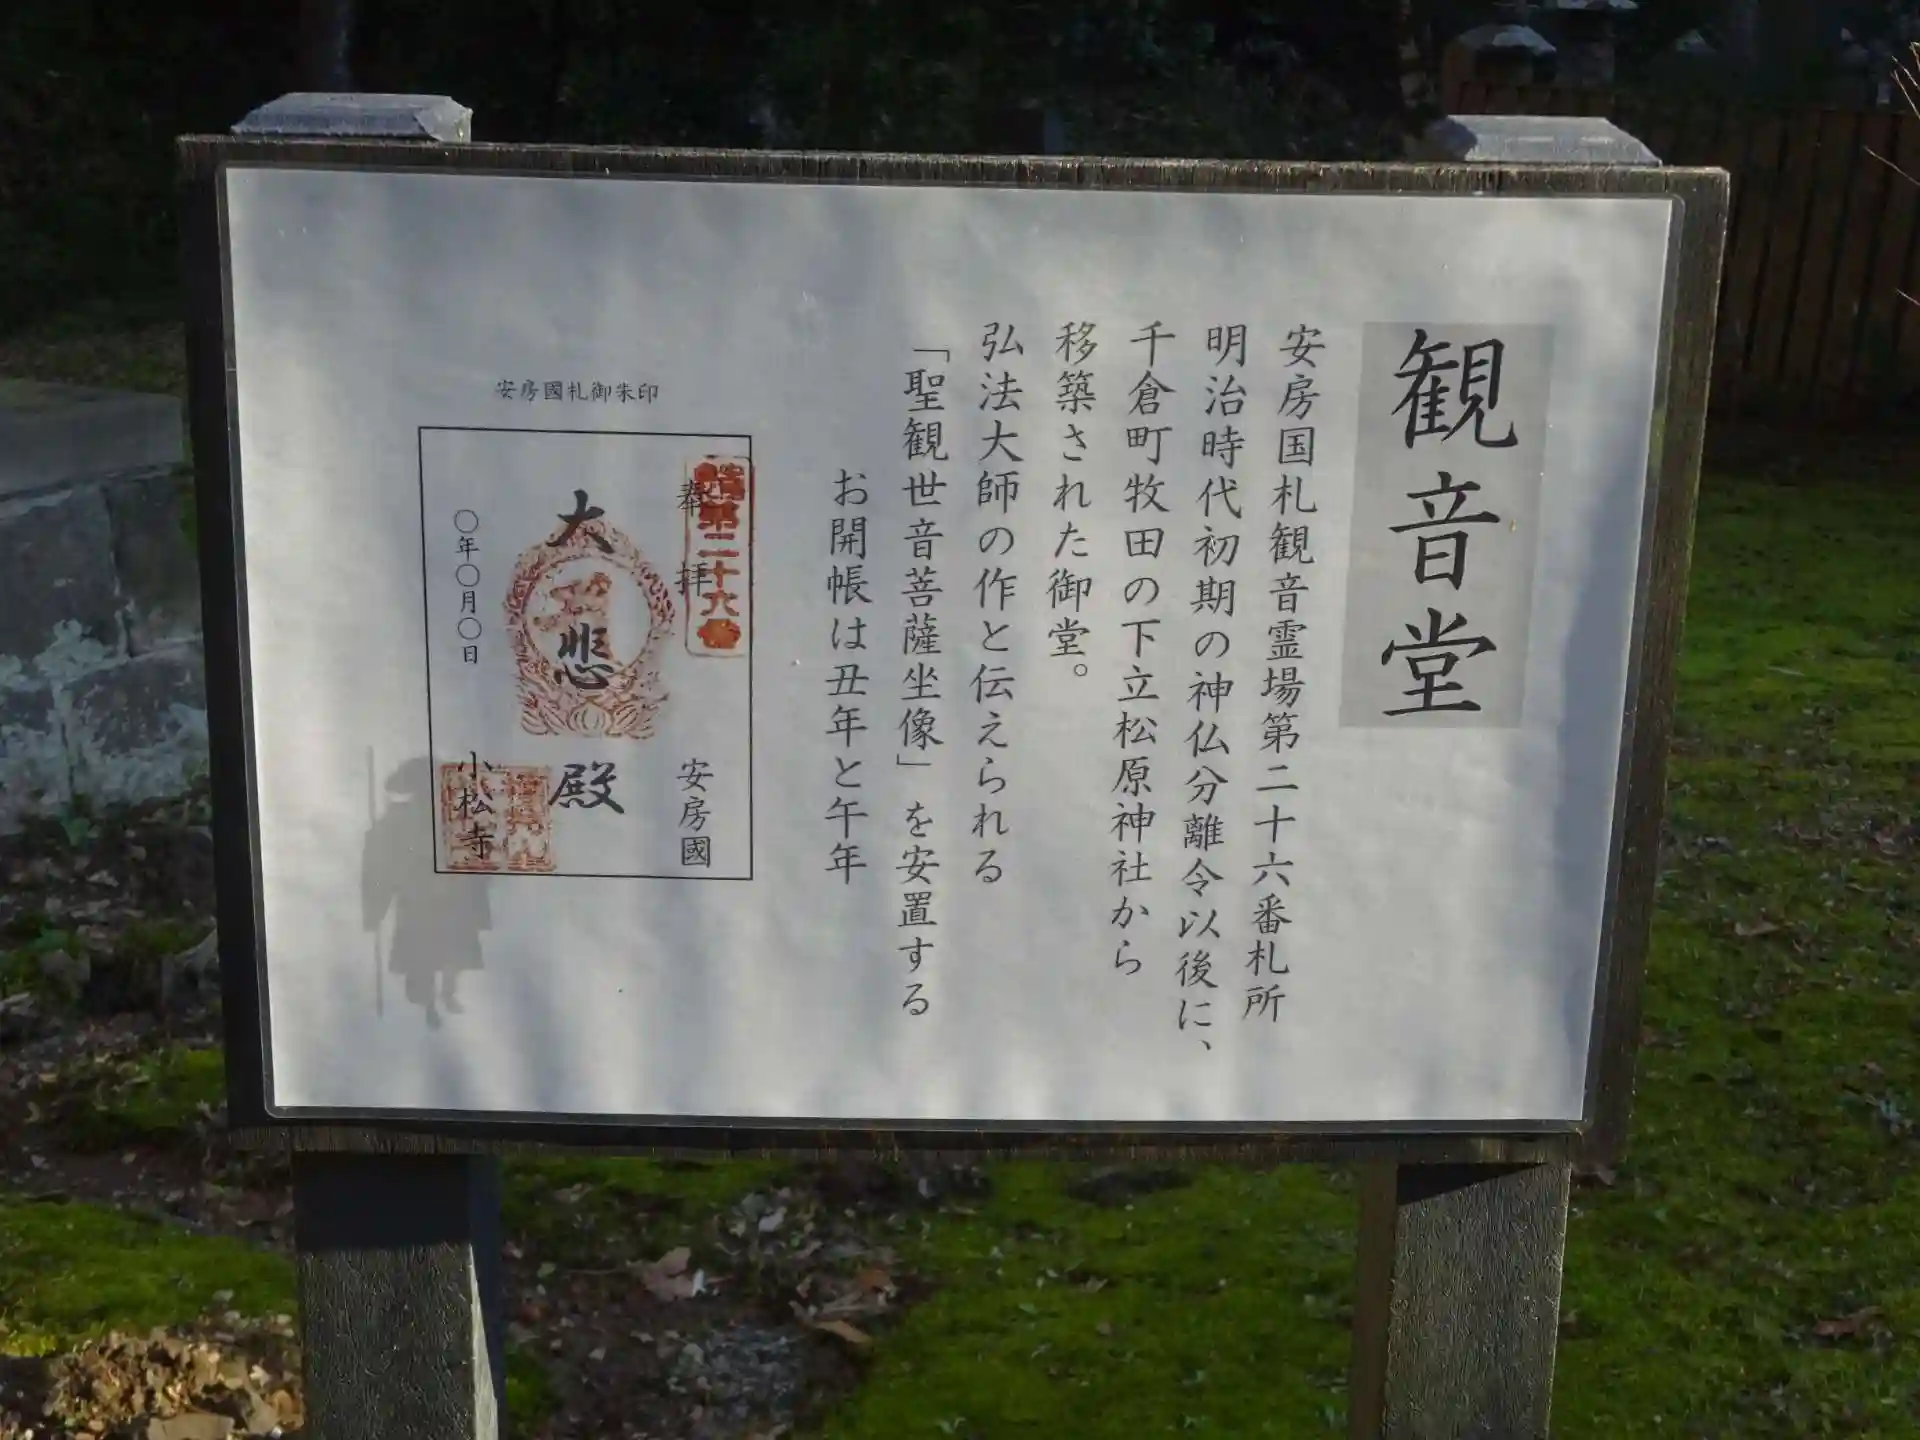 観音堂
安房国札観音霊場第二十六番札所
明治時代初期の神仏分離令以後に、
千倉町牧田の下立松原神社から
移築された御堂。
弘法大師の作と伝えられる
「聖観世音菩薩坐像」を安置する
お開帳は丑年と午年
安房國札御朱印
奉拝
第二十六番
安房國
大悲殿
〇年〇月〇日
小松寺